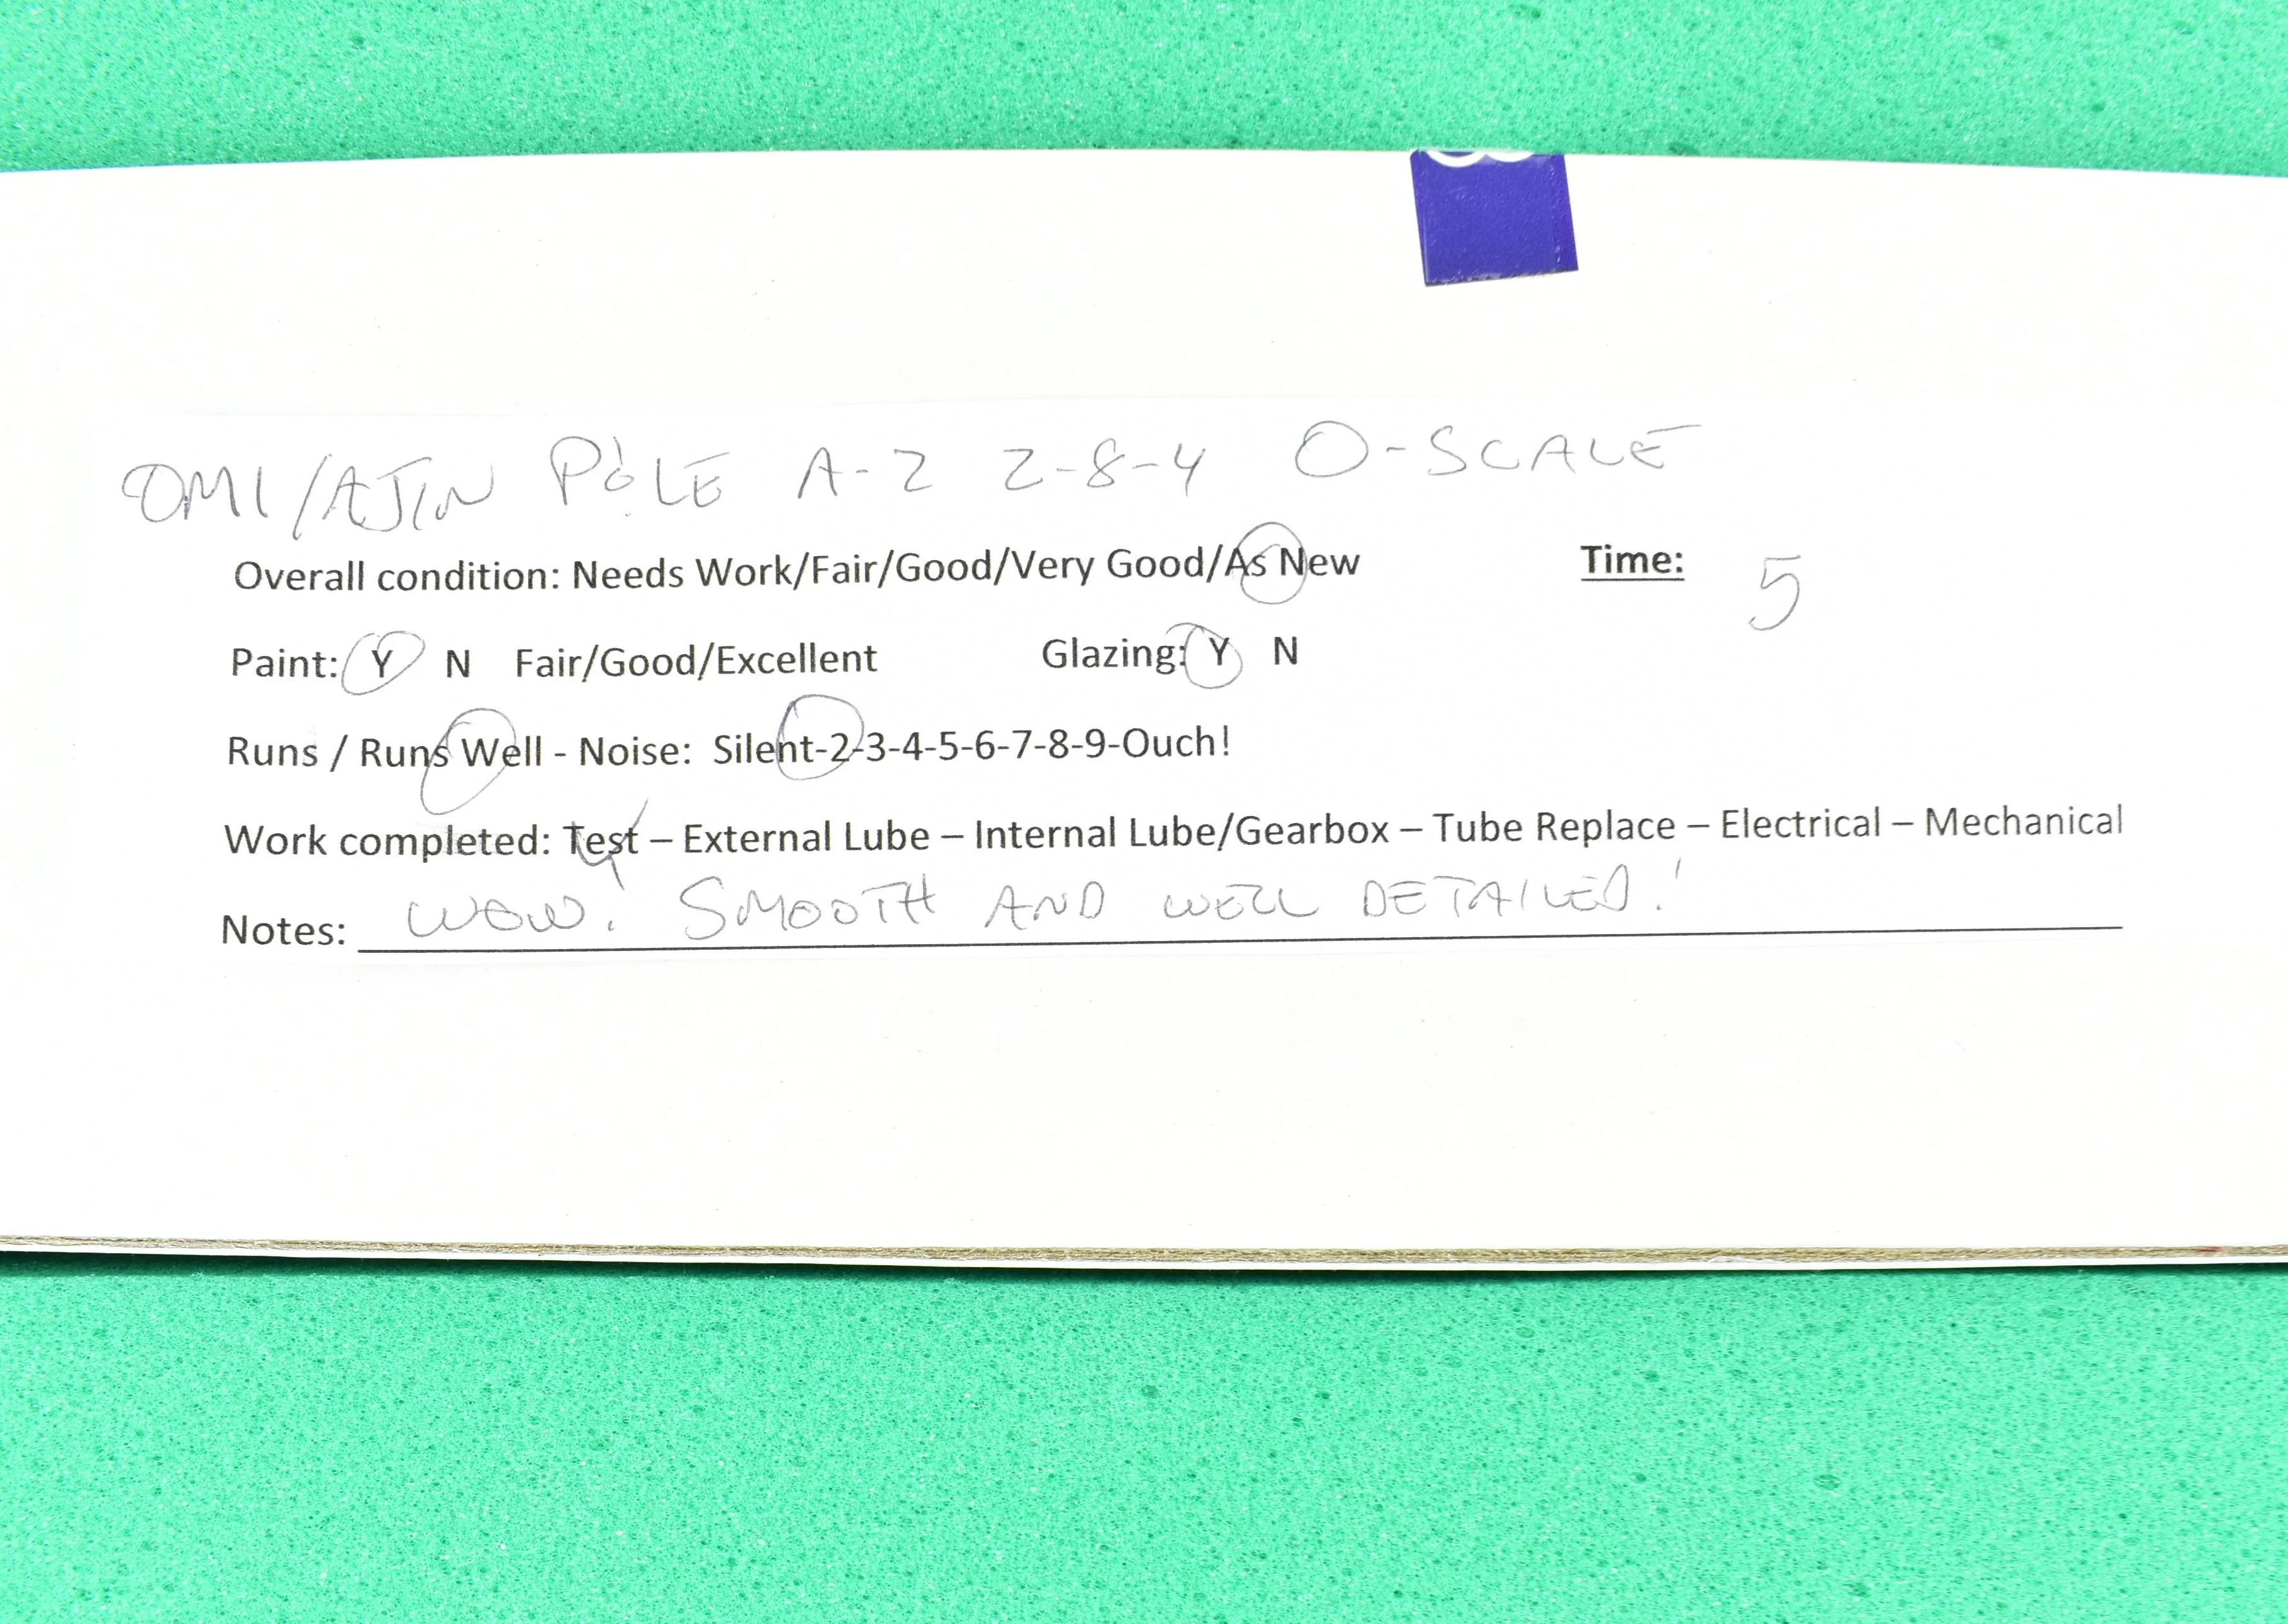 OMI/AJIN P&LE A-2 2-8-4 O-SCALE
Overall condition: Needs Work/Fair/Good/Very Good/As New Time: 5
Paint: Y N Fair/Good/Excellent Glazing: Y N
Runs / Runs Well - Noise: Silent-2-3-4-5-6-7-8-9-Ouch!
Work completed: Test – External Lube – Internal Lube/Gearbox – Tube Replace – Electrical – Mechanical
Notes: WOW! SMOOTH AND WELL DETAILED!